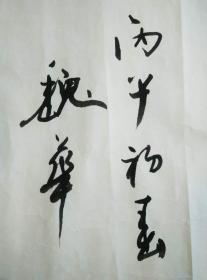 丙午初春
魏華